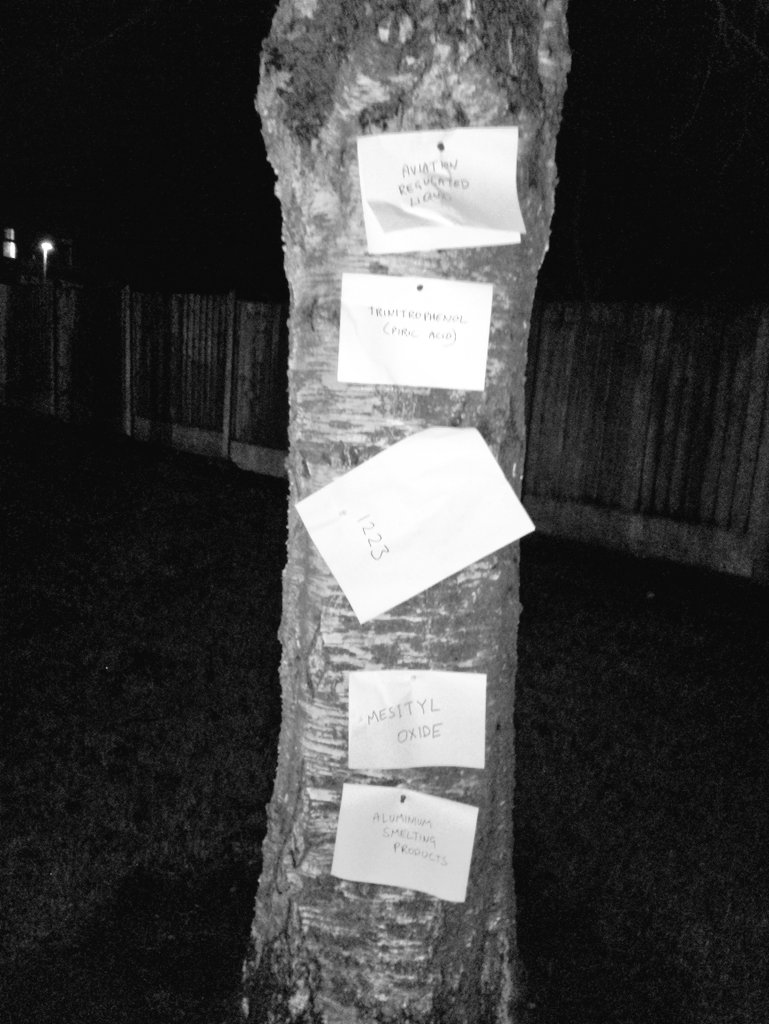 AVIATION
REGULATED
LIQUID
TRINITROPHENOL
(PIRIC ACID)
1223
MESITYL
OXIDE
ALUMINIUM
SMELTING
PRODUCTS